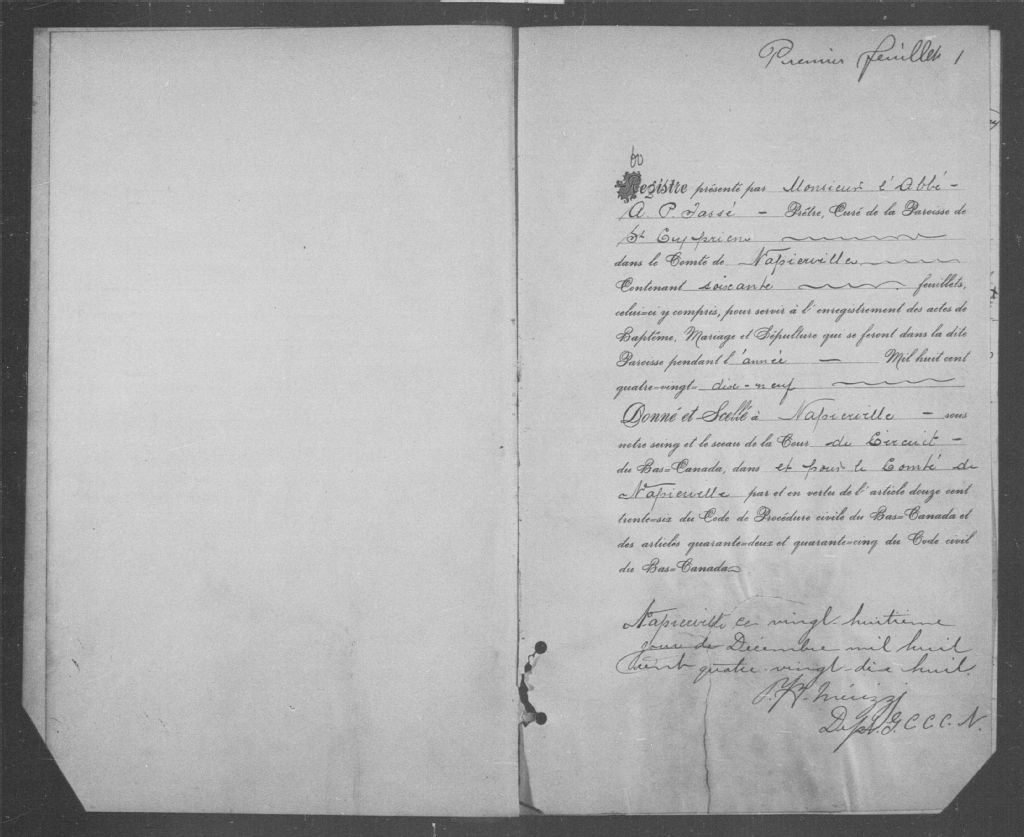 Premier feuillet 1
60
Registre présenté par Monsieur l'Abbé -
A. P. Tassé - Prêtre, Curé de la Paroisse de
St Cyprien
dans le Comté de Napierville
Contenant soixante feuillets,
celui-ci y compris, pour servir à l'enregistrement des actes de
Baptême, Mariage et Sépulture qui se feront dans la dite
Paroisse pendant l'année - Mil huit cent
quatre-vingt- dix-neuf
Donné et Scellé à Napierville - sous
notre seing et le sceau de la Cour de Circuit -
du Bas-Canada, dans et pour le Comté de
Napierville par et en vertu de l'article douze cent
trente-six du Code de Procédure civile du Bas-Canada et
des articles quarante-deux et quarante-cinq du Code civil
du Bas-Canada
Napierville ce vingt-huitième
jour de Décembre mil huit
cent quatre-vingt-dix huit.
Dept. G. C. C. C. N.